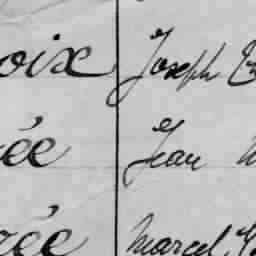 oix Joseph
ée Jean
rée Marcel